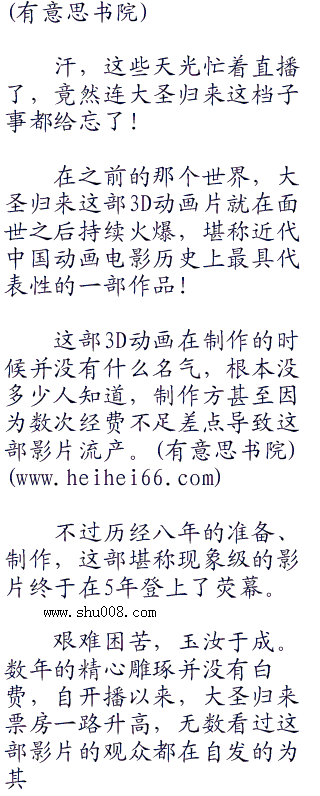 (有意思书院)
汗，这些天光忙着直播
了，竟然连大圣归来这档子
事都给忘了!
在之前的那个世界，大
圣归来这部3D动画片就在面
世之后持续火爆，堪称近代
中国动画电影历史上最具代
表性的一部作品!
这部3D动画在制作的时
候并没有什么名气，根本没
多少人知道，制作方甚至因
为数次经费不足差点导致这
部影片流产。(有意思书院)
(www.heihei66.com)
不过历经八年的准备、
制作，这部堪称现象级的影
片终于在5年登上了荧幕。
www.shu008.com
艰难困苦，玉汝于成。
数年的精心雕琢并没有白
费，自开播以来，大圣归来
票房一路升高，无数看过这
部影片的观众都在自发的为
其